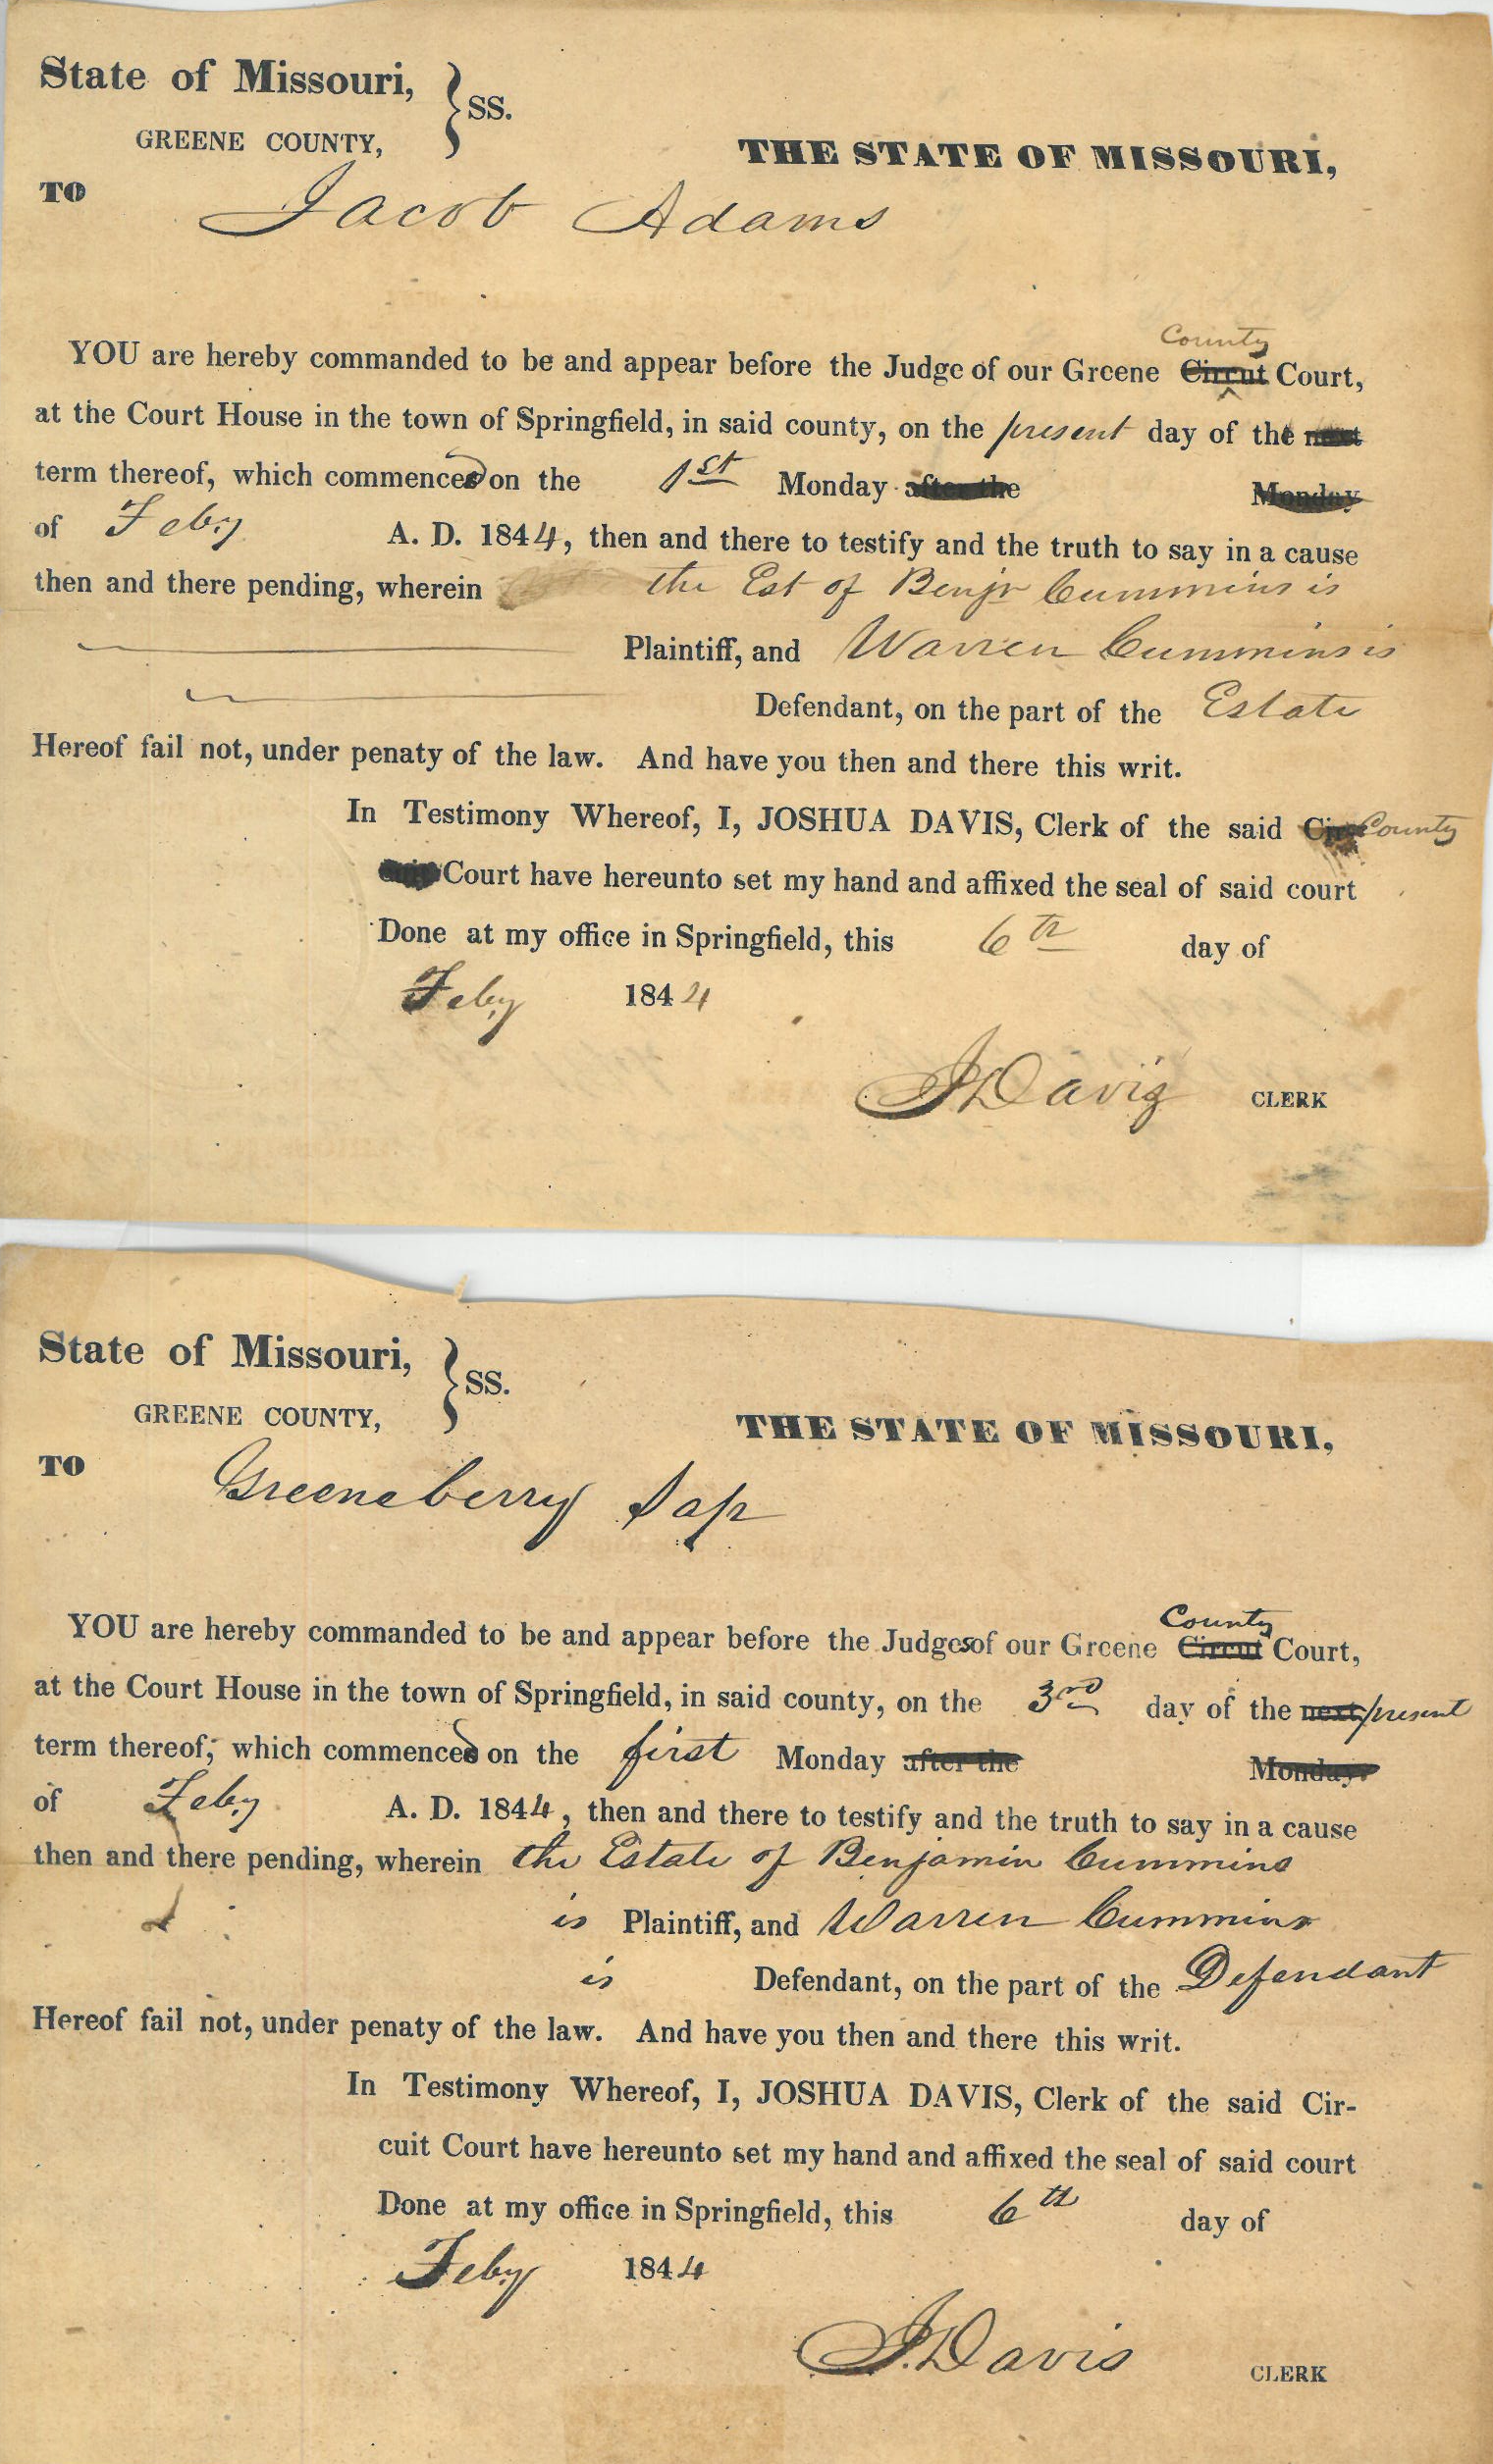 State of Missouri, } SS.
GREENE COUNTY,
THE STATE OF MISSOURI,
TO Jacob Adams
County
YOU are hereby commanded to be and appear before the Judge of our Greene Circuit Court,
at the Court House in the town of Springfield, in said county, on the present day of the next
term thereof, which commenced on the 1st Monday after the Monday
of Feby A. D. 1844, then and there to testify and the truth to say in a cause
then and there pending, wherein the Est of Benjn Cummins is
Plaintiff, and Warren Cummins is
Defendant, on the part of the Estate
Hereof fail not, under penaty of the law. And have you then and there this writ.
In Testimony Whereof, I, JOSHUA DAVIS, Clerk of the said County
Court have hereunto set my hand and affixed the seal of said court
Done at my office in Springfield, this 6th day of
Feby 1844
J Davis CLERK
State of Missouri, } SS.
GREENE COUNTY,
THE STATE OF MISSOURI,
TO Greeneberry Sap
County
YOU are hereby commanded to be and appear before the Judges of our Greene Circuit Court,
at the Court House in the town of Springfield, in said county, on the 3rd day of the next present
term thereof, which commenced on the first Monday after the Monday.
of Feby A. D. 1844, then and there to testify and the truth to say in a cause
then and there pending, wherein the Estate of Benjamin Cummins
is Plaintiff, and Warren Cummins
is Defendant, on the part of the Defendant
Hereof fail not, under penaty of the law. And have you then and there this writ.
In Testimony Whereof, I, JOSHUA DAVIS, Clerk of the said Cir-
cuit Court have hereunto set my hand and affixed the seal of said court
Done at my office in Springfield, this 6th day of
Feby 1844
J. Davis CLERK